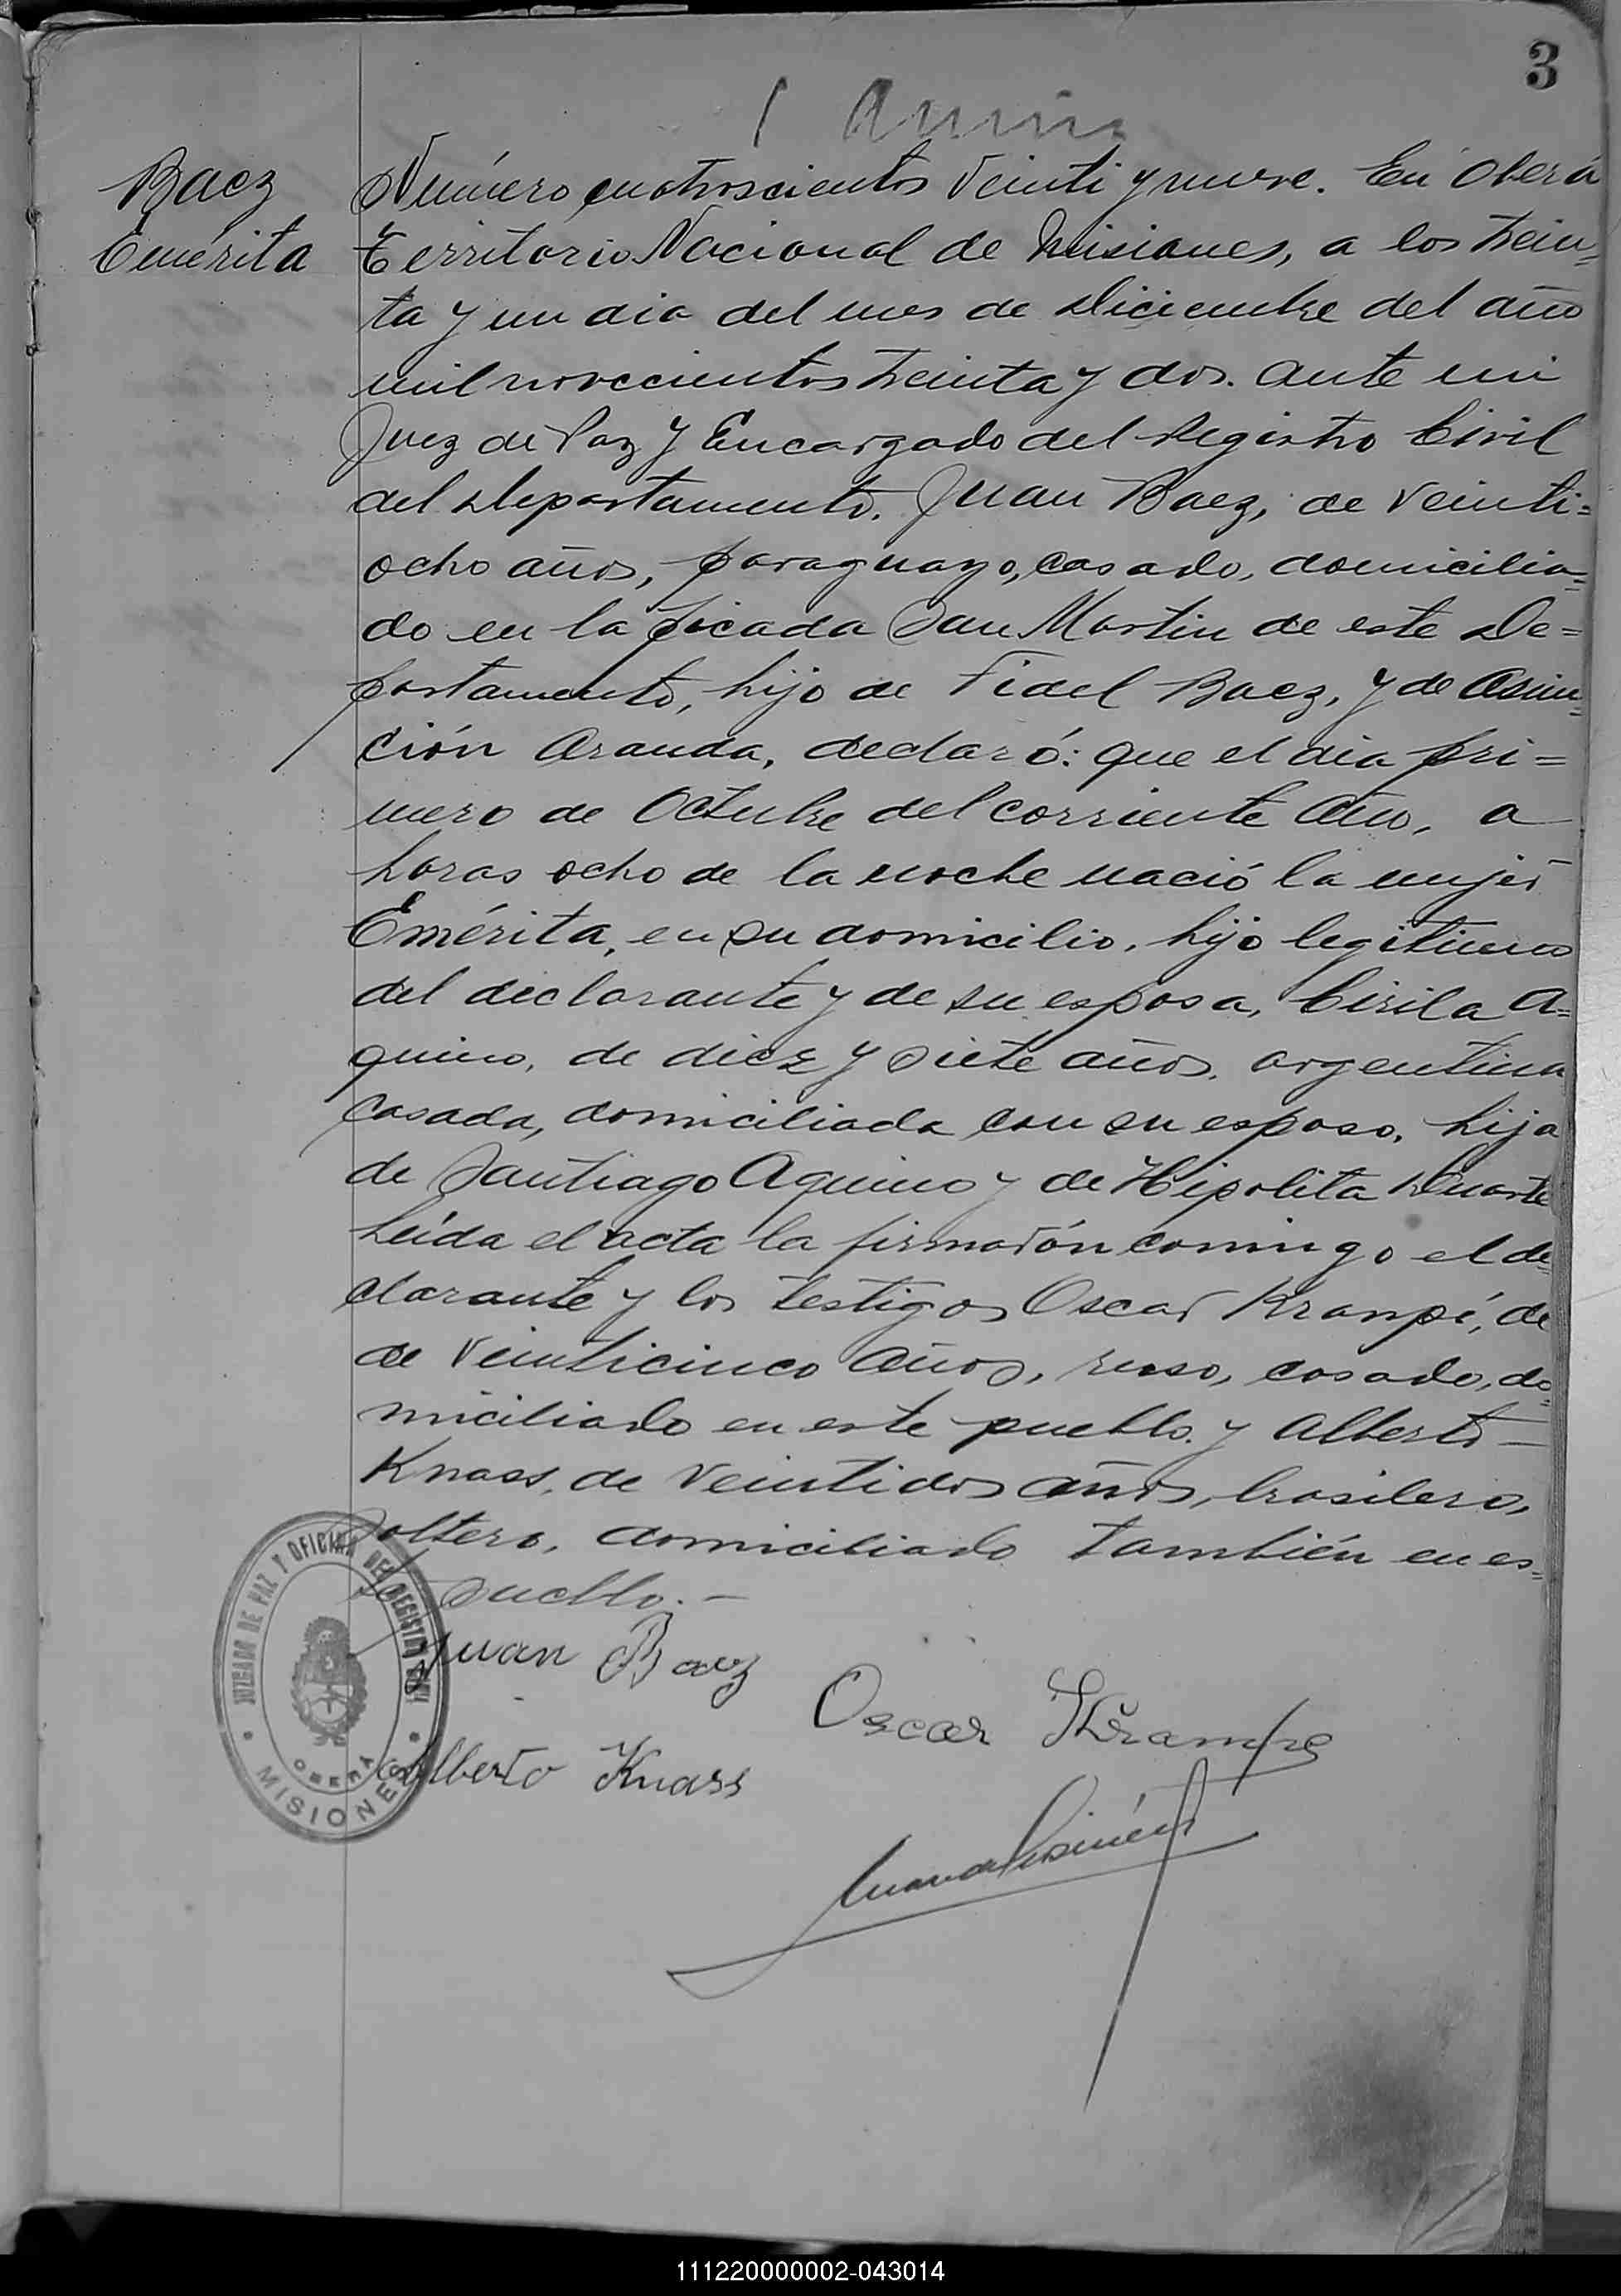 3
Baez
Emérita
Número cuatroscientos veinti y nueve. En Oberá
Territorio Nacional de Misiones, a los trein-
ta y un dia del mes de Diciembre del año
mil novecientos treinta y dos. ante mi
Juez de Paz y Encargado del Registro Civil
del Departamento. Juan Baez, de veinti=
ocho años, paraguayo, casado, domicilia=
do en la picada San Martin de este De=
partamento, hijo de Fidel Baez, y de Asun=
ción Aranda, declaró: que el dia pri=
mero de Octubre del corriente año, a
horas ocho de la noche nació la mujer
Emérita, en su domicilio, hijo legitimo
del declarante y de su esposa, Cirila A=
quino, de diez y siete años, argentina
casada, domiciliada con su esposo, hija
de Santiago Aquino y de Hipolita Duarte
Leída el acta la firmarón conmigo el de=
clarante y los testigos Oscar Krampé, de
de veinticinco años, ruso, casado, do=
miciliado en este pueblo. y Alberto
Knass, de veintidos años, brasilero,
soltero, domiciliado también en es=
te pueblo. -
Juan Baez
Oscar Krampe
Alberto Knass
JUZGADO DE PAZ Y OFICINA DEL REGISTRO CIVIL
OBERÁ
MISIONES
111220000002-043014